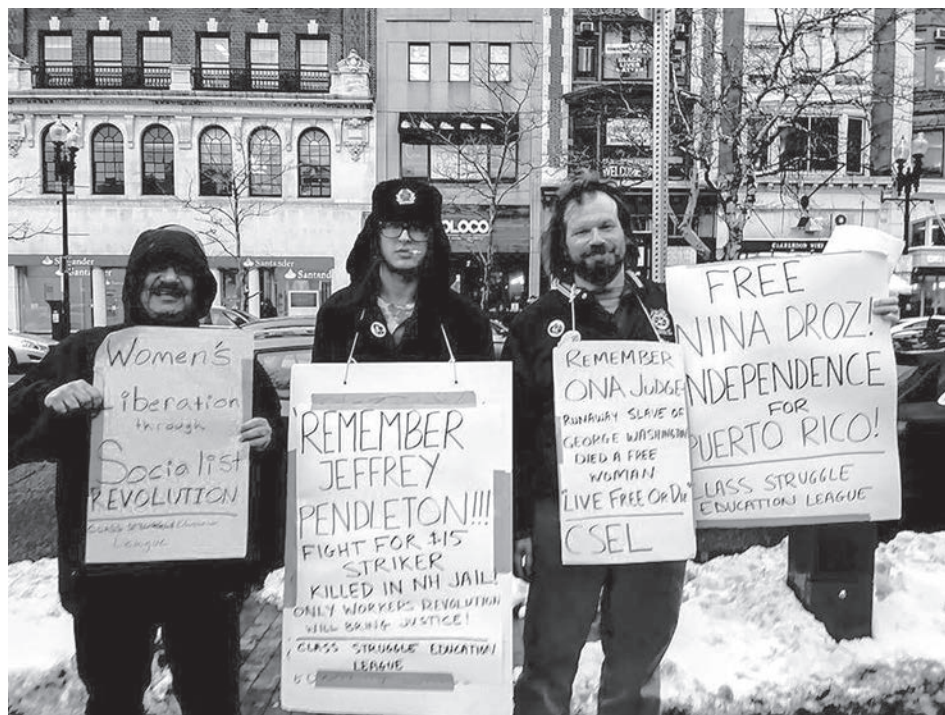 WELCOME
OLOCO
Santander
Santander
Santander
Women's
Liberation
through
Socialist
REVOLUTION
CLASS STRUGGLE Education
League
REMEMBER
JEFFREY
PENDLETON!!!
FIGHT FOR $15
STRIKER
KILLED IN NH JAIL!
ONLY WORKERS REVOLUTION
WILL BRING JUSTICE!
CLASS STRUGGLE EDUCATION
LEAGUE
REMEMBER
ONA JUDGE
RUNAWAY SLAVE OF
GEORGE WASHINGTON
DIED A FREE
WOMAN
"LIVE FREE OR DIE"
CSEL
FREE
NINA DROZ!
INDEPENDENCE
FOR
PUERTO RICO!
CLASS STRUGGLE
EDUCATION LEAGUE